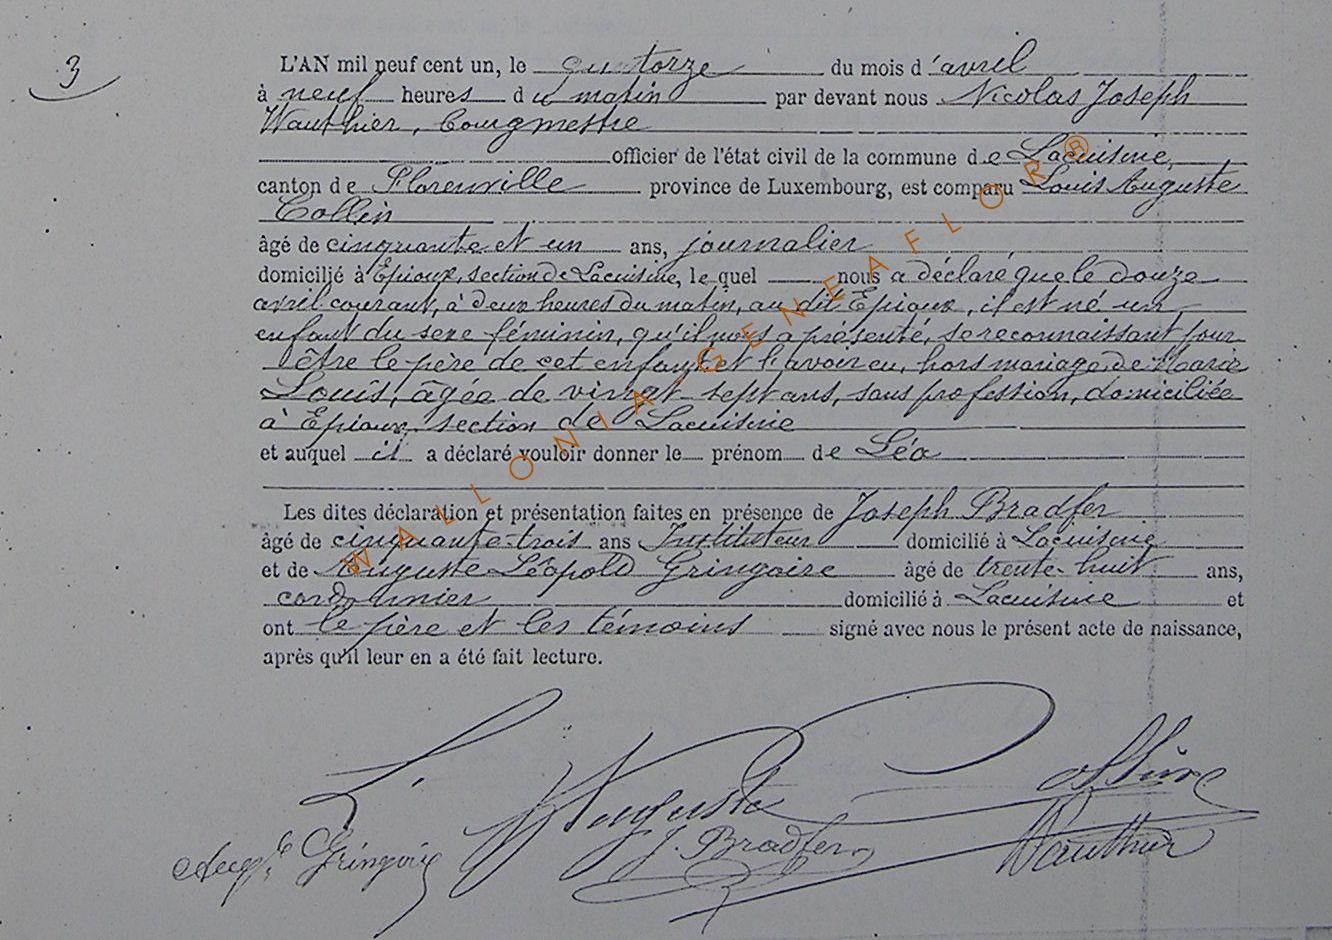 3
L'AN mil neuf cent un, le quatorze du mois d'avril
à neuf heures du matin par devant nous Nicolas Joseph
Wauthier, Bourgmestre
officier de l'état civil de la commune de Lacuisine,
canton de Florenville province de Luxembourg, est comparu Louis Auguste
Collin
âgé de cinquante et un ans, journalier
domicilié à Epioux, section de Lacuisine, le quel nous a déclaré que le douze
avril courant, à deux heures du matin, au dit Epioux, il est né un
enfant du sexe féminin, qu'il nous a présenté, se reconnaissant pour
être le père de cet enfant et l'avoir eu, hors mariage, de Marie
Louis, âgée de vingt sept ans, sans profession, domiciliée
à Epioux, section de Lacuisine
et auquel il a déclaré vouloir donner le prénom de Léa
Les dites déclaration et présentation faites en présence de Joseph Bradfer
âgé de cinquante-trois ans Instituteur domicilié à Lacuisine
et de Auguste Léopold Gringoire âgé de trente-huit ans,
cordonnier domicilié à Lacuisine et
ont le père et les témoins signé avec nous le présent acte de naissance,
après qu'il leur en a été fait lecture.
L. Auguste Collin
Augte Gringoire J. Bradfer Wauthier
WALLONIA-GENEAFLOR®